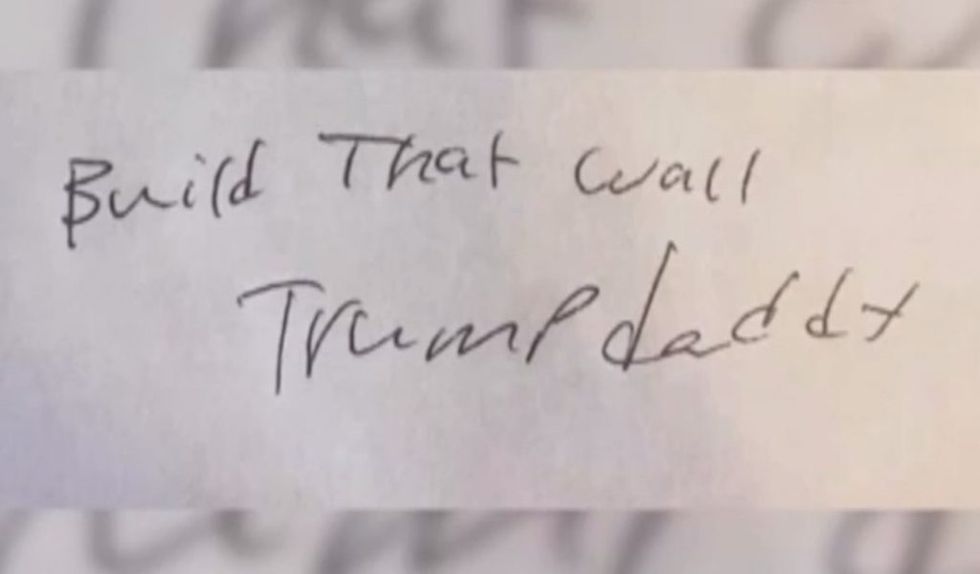 Build That Wall
Trumpdaddy